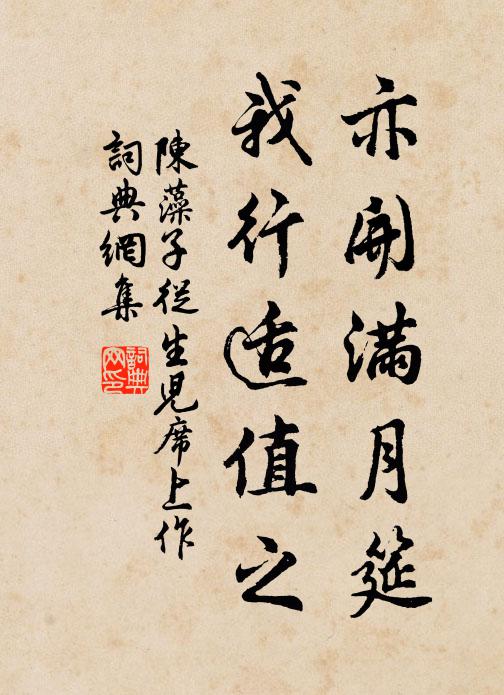 亦開滿月筵
我行适值之
陳藻子從生児席上作
詞典網集
詞典
网印